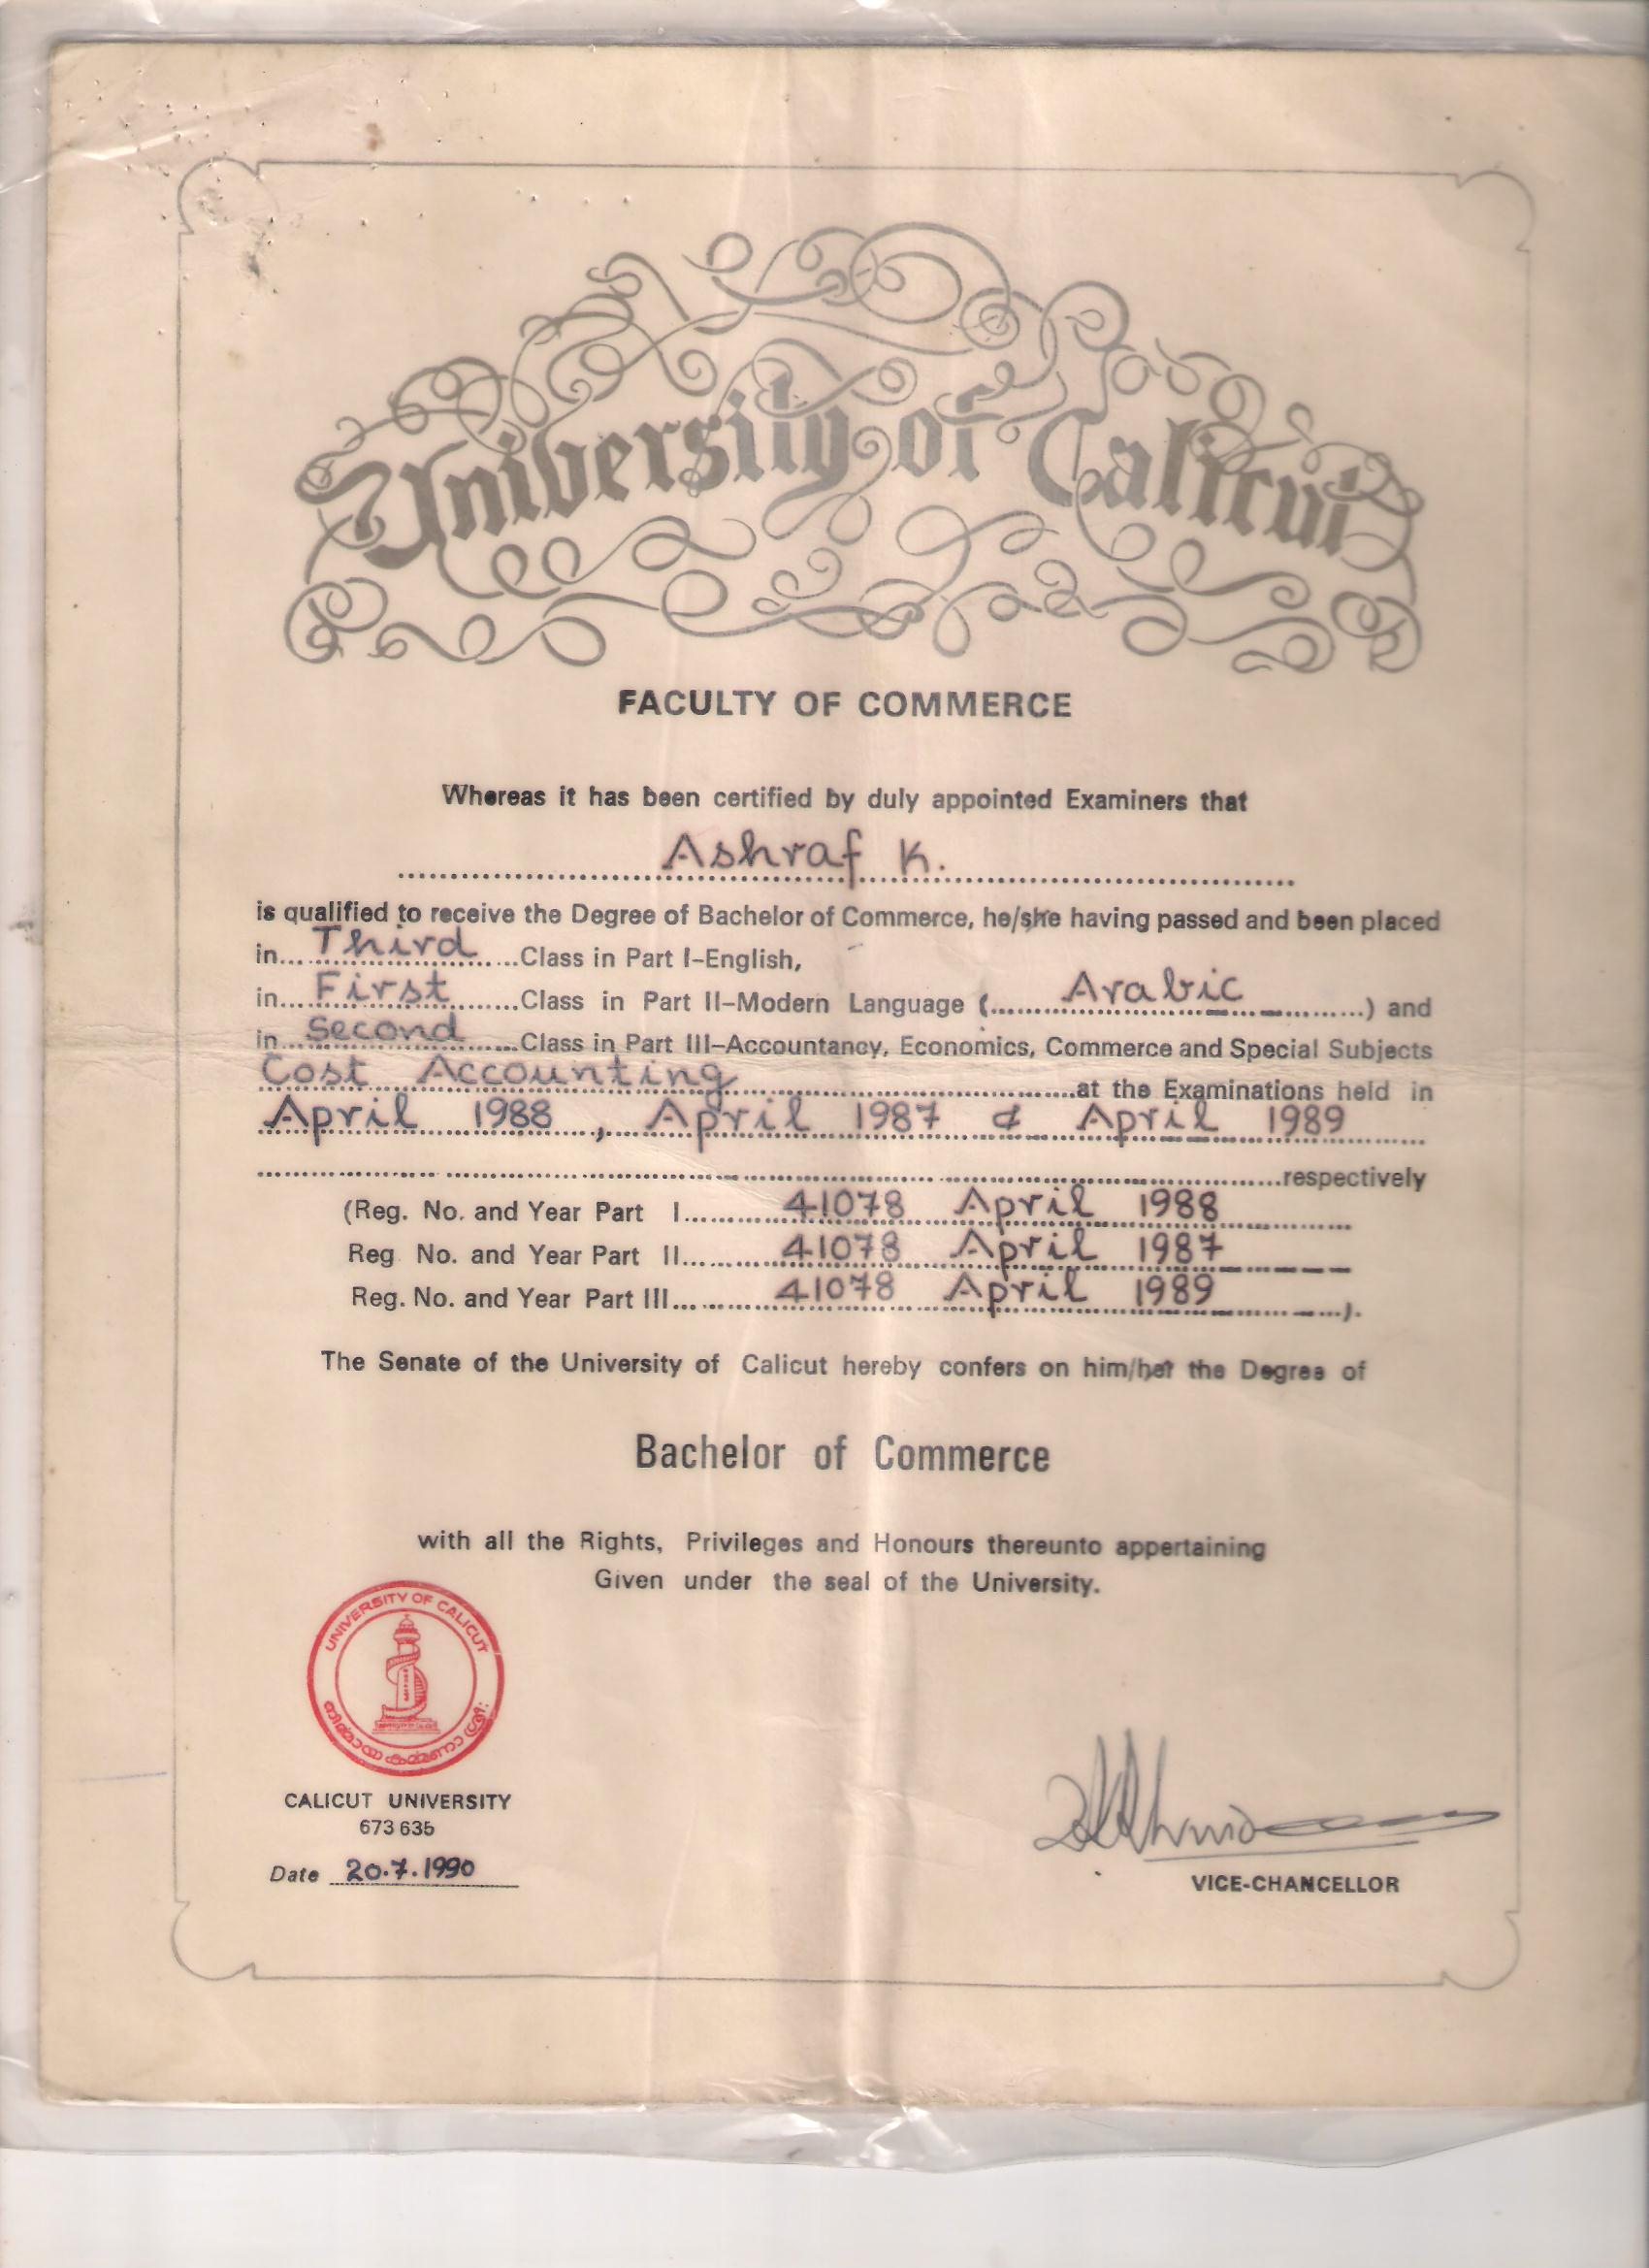 University of Calicut
FACULTY OF COMMERCE
Whereas it has been certified by duly appointed Examiners that
Ashraf K.
is qualified to receive the Degree of Bachelor of Commerce, he/she having passed and been placed
in Third Class in Part I-English,
in First Class in Part II-Modern Language (Arabic) and
in Second Class in Part III-Accountancy, Economics, Commerce and Special Subjects
Cost Accounting at the Examinations held in
April 1988, April 1987 & April 1989
respectively
(Reg. No. and Year Part I 41078 April 1988
Reg No. and Year Part II 41078 April 1987
Reg. No. and Year Part III 41078 April 1989).
The Senate of the University of Calicut hereby confers on him/her the Degree of
Bachelor of Commerce
with all the Rights, Privileges and Honours thereunto appertaining
Given under the seal of the University.
UNIVERSITY OF CALICUT
നിർമ്മായ കർമ്മണാ ശ്രീ:
CALICUT UNIVERSITY
673 635
Date 20.7.1990
VICE-CHANCELLOR